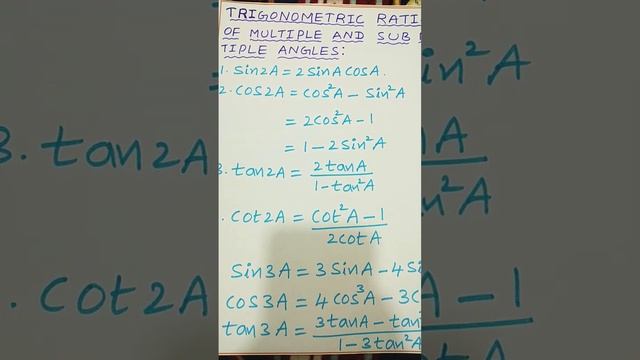 TRIGONOMETRIC RATI
OF MULTIPLE AND SUB
TIPLE ANGLES:
1. Sin2A = 2SinA CosA.
2. COS2A = Cos²A – Sin²A
= 2Cos²A – 1
= 1 – 2Sin²A
3. tan2A = 2tanA / 1-tan²A
. Cot2A = Cot²A – 1 / 2Cot A
Sin3A = 3SinA – 4Si
COS3A = 4Cos³A – 3C
tan3A = 3tanA – tan / 1 – 3tan²A